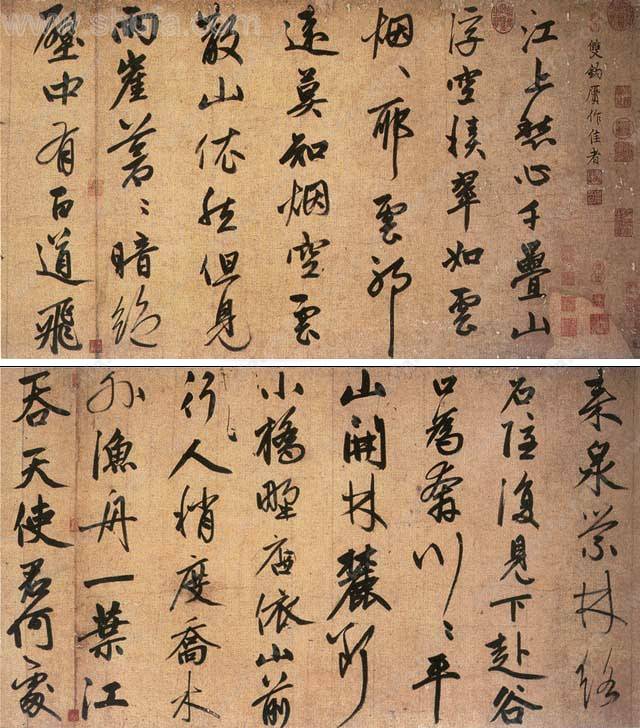 www.shufa.com
雙鈎贋作佳者
江上愁心千疊山
浮空積翠如雲
烟〻耶雲耶
遠莫知烟空雲
散山依然但見
兩崖蒼〻暗絕
壑中有百道飛
來泉縈林絡
石隱復見下赴谷
口為奔川〻平
山開林麓斷
小橋野店依山前
行人稍度喬木
外漁舟一葉江
吞天使君何處